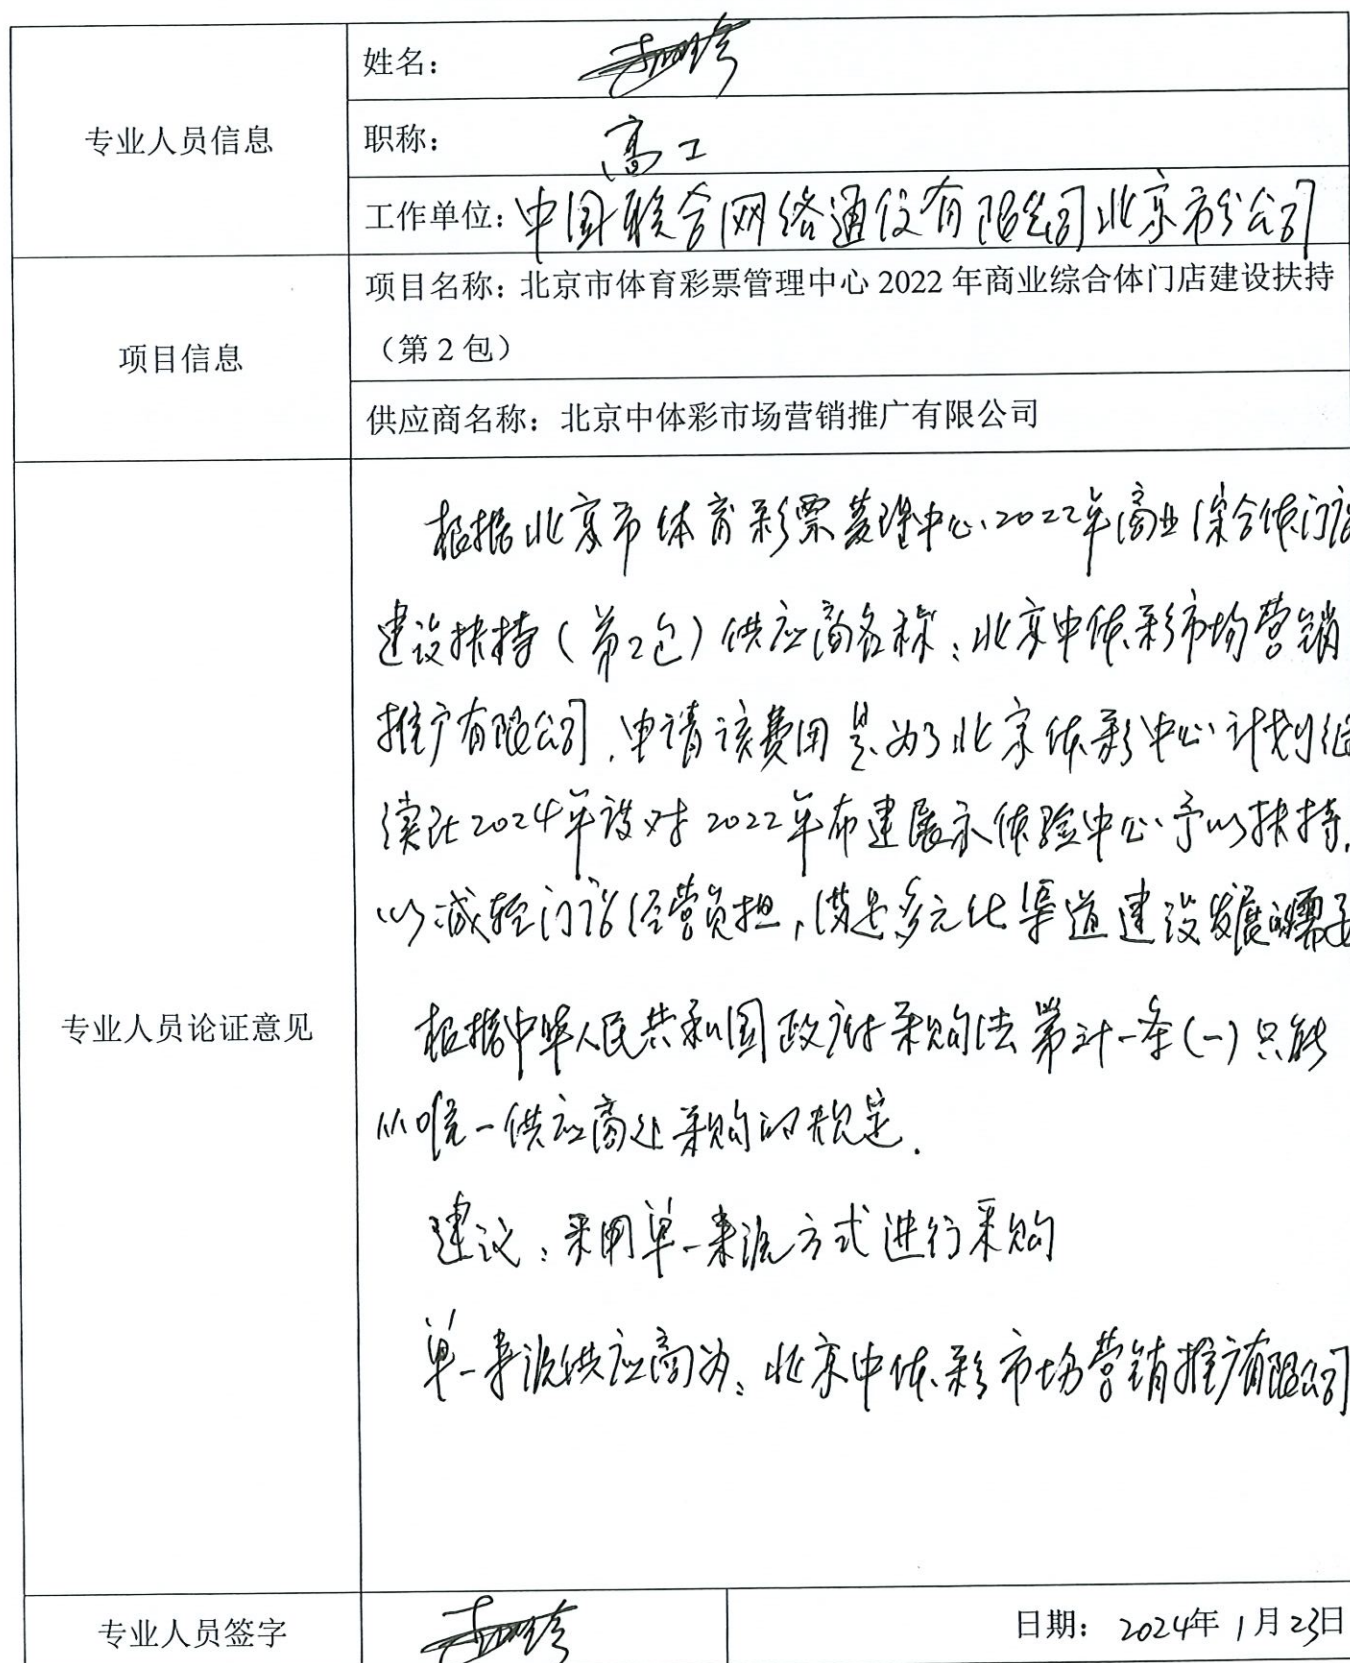 姓名：
职称：高工
专业人员信息
工作单位：中国联合网络通信有限公司北京市分公司
项目名称：北京市体育彩票管理中心 2022 年商业综合体门店建设扶持
（第 2 包）
项目信息
供应商名称：北京中体彩市场营销推广有限公司
根据北京市体育彩票管理中心2022年商业综合体门店
建设扶持（第2包）供应商名称：北京中体彩市场营销
推广有限公司，申请该费用是为了北京体彩中心计划继
续在2024年度对2022年布建展示体验中心予以扶持，
以减轻门店经营负担，满足多元化渠道建设发展的需要
专业人员论证意见
根据中华人民共和国政府采购法第三十一条（一）只能
从唯一供应商处采购的规定.
建议：采用单一来源方式进行采购
单一来源供应商为：北京中体彩市场营销推广有限公司
专业人员签字
日期：2024年1月23日